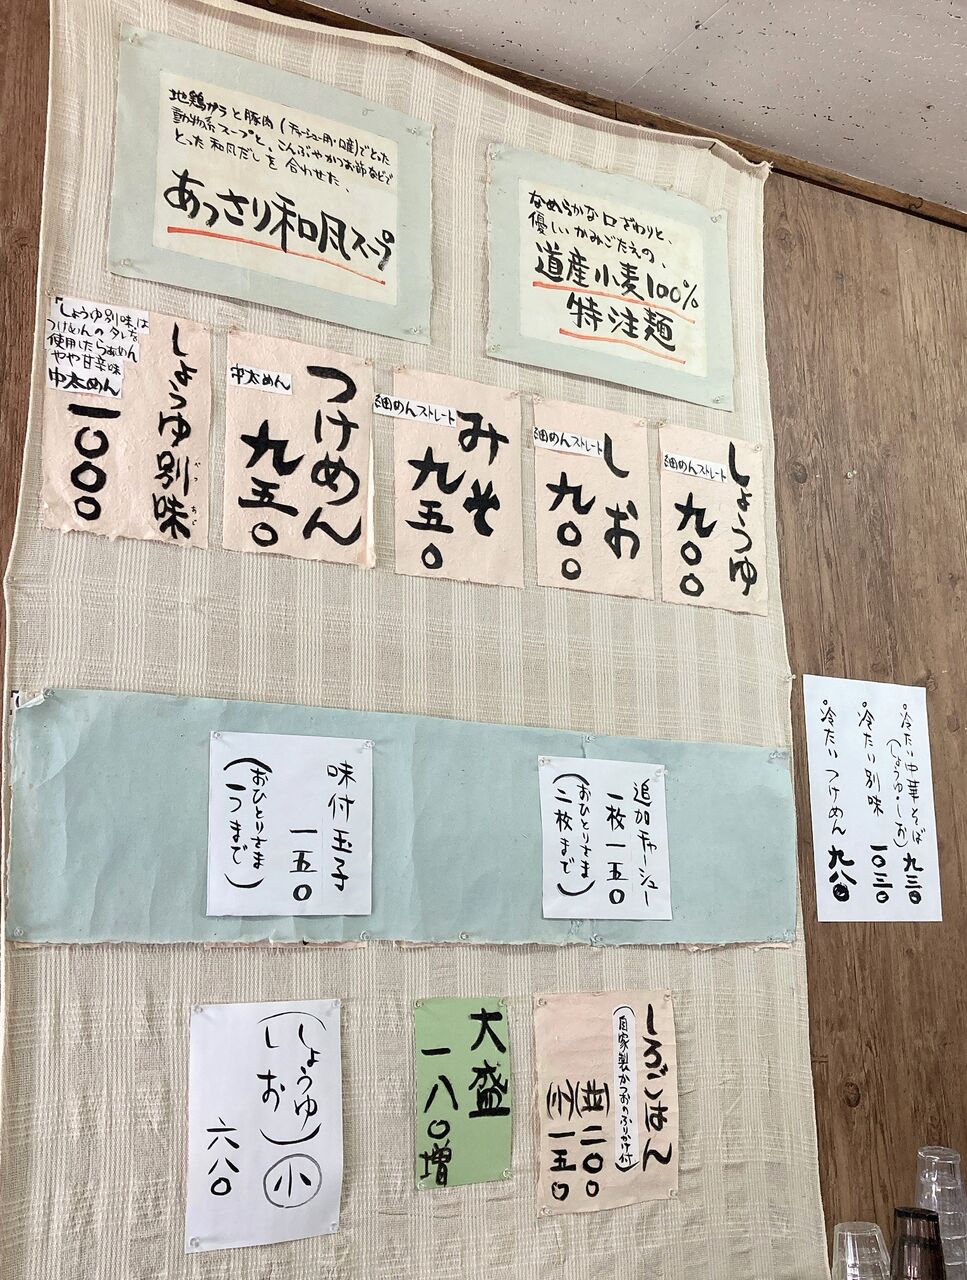 地鶏ガラと豚肉(チャーシュー用・口産)でとった
動物系スープと、こんぶやかつお節などで
とった和風だしを合わせた、
あっさり和風スープ
なめらかな口ざわりと、
優しいかみごたえの、
道産小麦100%
特注麺
しょうゆ
細めんストレート
九〇〇
しお
細めんストレート
九〇〇
みそ
細めんストレート
九五〇
つけめん
中太めん
九五〇
しょうゆ別味
べつあじ
「しょうゆ別味」は
つけめんのタレを
使用したらぁめん
やや甘辛味
中太めん
一〇〇〇
追加チャーシュー
一枚一五〇
(おひとりさま
二枚まで)
味付玉子
一五〇
(おひとりさま
一つまで)
°冷たい中華そば 九三〇
(しょうゆ・しお)
°冷たい別味 一〇三〇
°冷たいつけめん 九八〇
しろごはん
(自家製かつおのふりかけ付)
二〇〇
一五〇
大盛
一八〇増
(しょうゆ)小
しお
六八〇